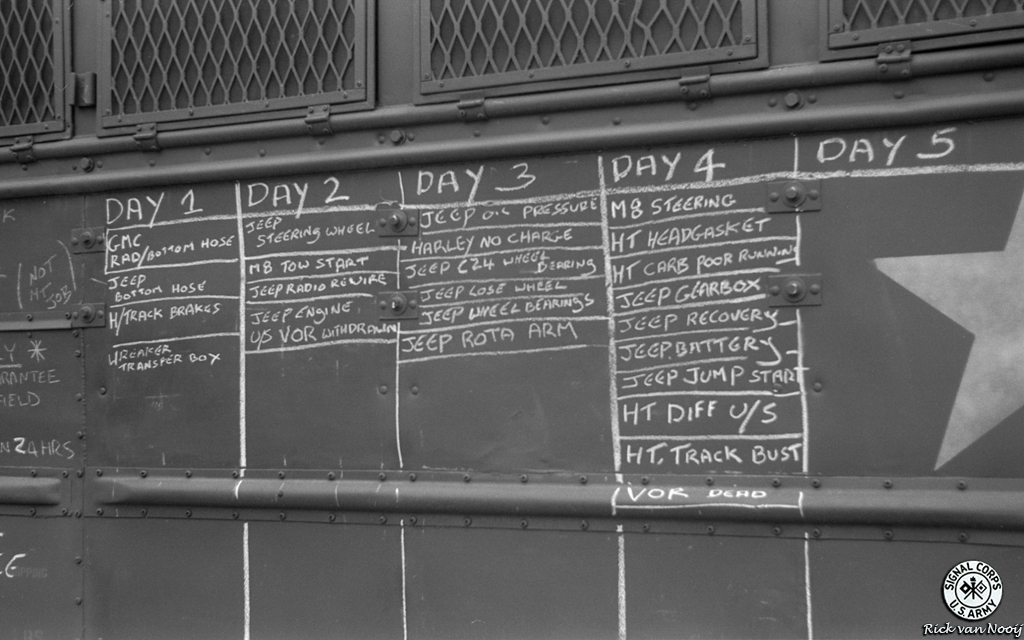 DAY 1
GMC
RAD/BOTTOM HOSE
JEEP
BOTTOM HOSE
H/TRACK BRAKES
WREAKER
TRANSFER BOX
DAY 2
JEEP
STEERING WHEEL
M8 TOW START
JEEP RADIO REWIRE
JEEP ENGINE
U/S VOR WITHDRAWN
DAY 3
JEEP OIL PRESSURE
HARLEY NO CHARGE
JEEP C24 WHEEL
BEARING
JEEP LOSE WHEEL
JEEP WHEEL BEARINGS
JEEP ROTA ARM
DAY 4
M8 STEERING
HT HEADGASKET
HT CARB POOR RUNNIN
JEEP GEARBOX
JEEP RECOVERY
JEEP BATTERY
JEEP JUMP START
HT DIFF U/S
HT, TRACK BUST
VOR DEAD
DAY 5
K
(NOT
JOB)
Y *
RANTEE
FIELD
N 24 HRS
SIGNAL CORPS
U.S. ARMY
Rick van Nooij